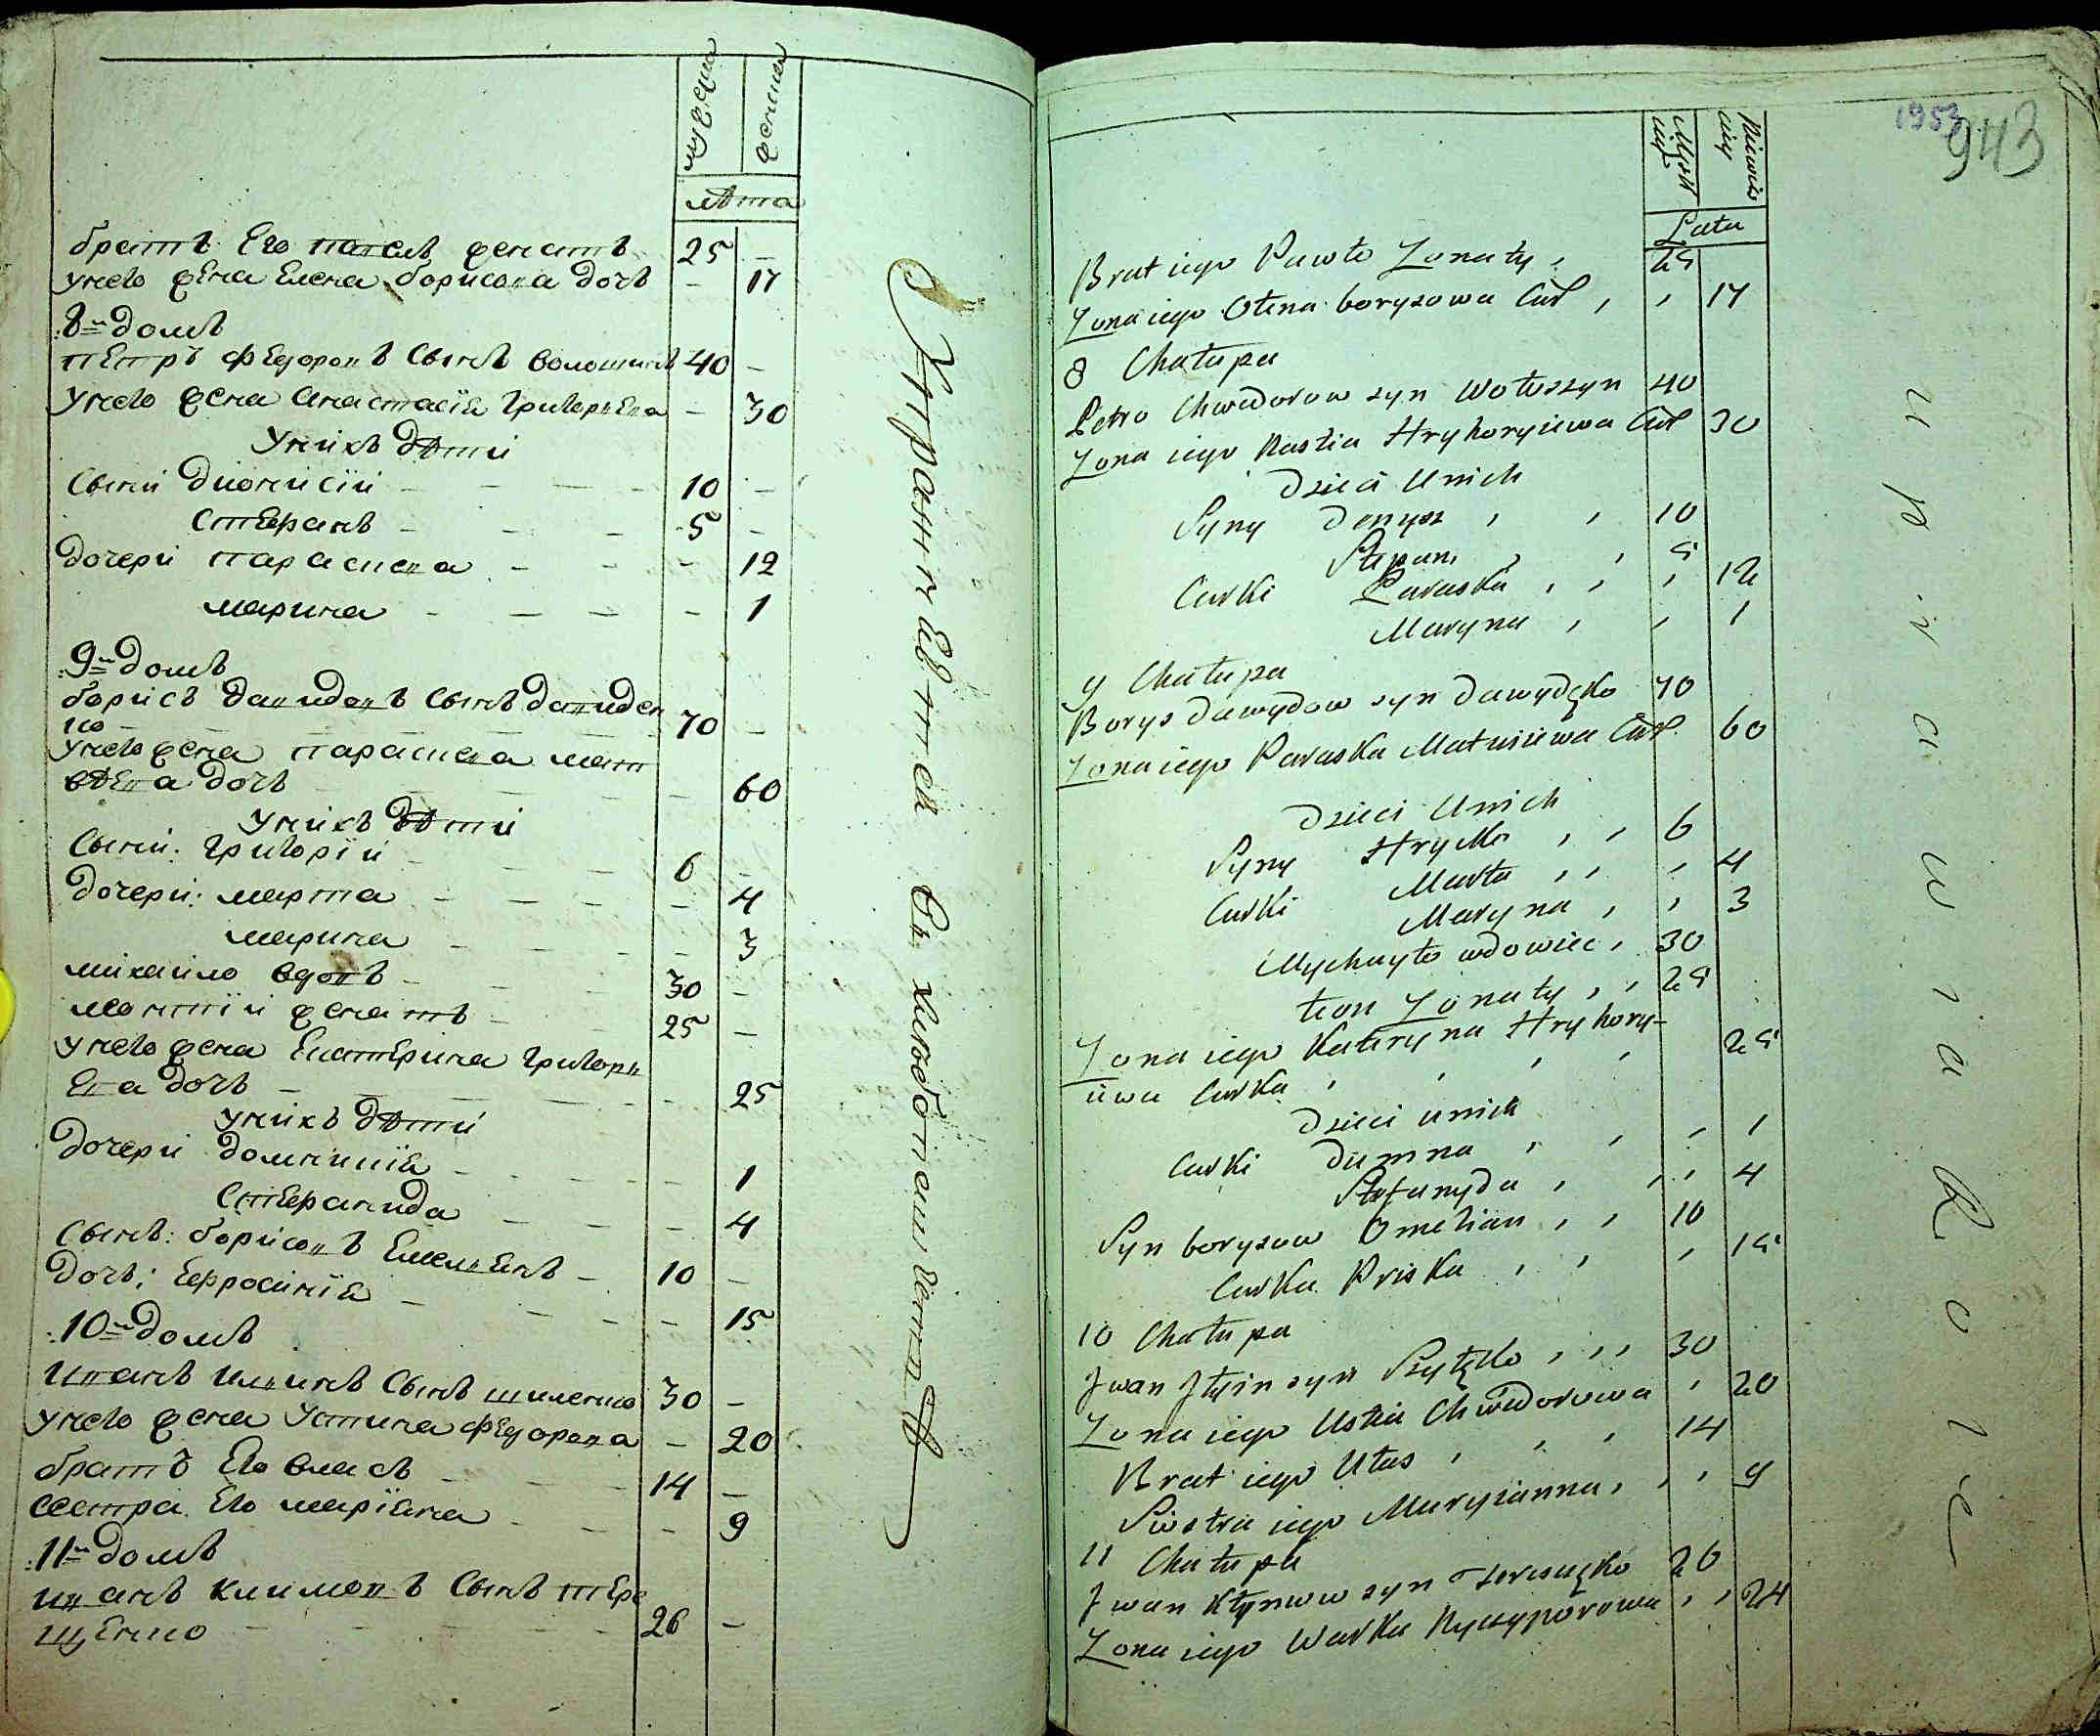 мужеска
женска
лѣта
братъ Его павелъ женатъ 25 –
унего жена Елена борисова дочь – 17
8й домъ
пЕтръ фЕдоровъ Сынъ волошинъ 40 –
унего жена анастасїя григорьЕва – 30
Унихъ дѣти
Сыни дионисїй 10 –
СтЕфанъ 5 –
дочери параскева – 12
марина – 1
9й домъ
борисъ давидовъ Сынъ давиден
ко 70 –
унего жена параскева мат
вѢЕва дочь – 60
Унихъ дѣти
Сыни: григорїй 6 –
дочери: марта – 4
марина – 3
михайло вдовъ 30 –
леонтїй женатъ 25 –
унего жена ЕкатЕрина григорь
Ева дочь – 25
унихъ дѣти
дочери домникїя – 1
СтЕфанида – 4
Сынъ: борисовъ ЕмельЕнъ 10 –
дочь: Ефросинїя – 15
10й домъ
иванъ ильинъ Сынъ шиленко 30 –
унего жена Устина фЕдорова – 20
братъ Его власъ 14 –
сестра Его марїяна – 9
11й домъ
иванъ климовъ Сынъ тЕре
щЕнко 26 –
943
Lata
Brat iego Pawło Zonaty 25
Zona iego Ołena borysowa Cur 17
8 Chałupa
Petro Chwedorow syn Wołoszyn 40
Zona iego Nastia Hryhoryiewa Cur 30
Dzieci Unich
Syny Denysz 10
Stepan 5
Curki Paraska 12
Maryna 1
9 Chałupa
Borys Dawydow syn Dawydęko 70
Zona iego Paraska Matwiiewa Cur 60
Dzieci Unich
Syny Hrycko 6
Curki Marta 4
Maryna 3
Mychayło wdowiec 30
Łeon Zonaty 25
Zona iego Kateryna Hryhory-
iewa Curka 25
Dzieci unich
Curki Dumna 1
Stefanyda 4
Syn borysow Omelian 10
Curka Priska 15
10 Chałupa
Jwan Jłyin syn Szyłęko 30
Zona iego Ustia Chwedorowa 20
Brat iego Ułas 14
Siostra iego Maryianna 9
11 Chałupa
Jwan Kłymow syn Tereszęko 26
Zona iego Warka Nyczyporowa 24